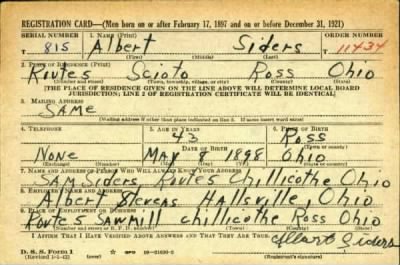 REGISTRATION CARD—(Men born on or after February 17, 1897 and on or before December 31, 1921)
SERIAL NUMBER 1. NAME (Print) ORDER NUMBER
T 815 Albert Siders T 11434
(First) (Middle) (Last)
2. PLACE OF RESIDENCE (Print)
Route5 Scioto Ross Ohio
(Number and street) (Town, township, village, or city) (County) (State)
[THE PLACE OF RESIDENCE GIVEN ON THE LINE ABOVE WILL DETERMINE LOCAL BOARD
JURISDICTION; LINE 2 OF REGISTRATION CERTIFICATE WILL BE IDENTICAL]
3. MAILING ADDRESS
SAME
[Mailing address if other than place indicated on line 2. If same insert word same]
4. TELEPHONE 5. AGE IN YEARS 6. PLACE OF BIRTH
43 Ross
DATE OF BIRTH
None MAY 8 1898 Ohio
7. NAME AND ADDRESS OF PERSON WHO WILL ALWAYS KNOW YOUR ADDRESS
SAM Siders Route5 Chillicothe Ohio
8. EMPLOYER'S NAME AND ADDRESS
Albert Stevens Hallsville, Ohio
9. PLACE OF EMPLOYMENT OR BUSINESS
Route5 Sawmill chillicothe Ross Ohio
I AFFIRM THAT I HAVE VERIFIED ABOVE ANSWERS AND THAT THEY ARE TRUE.
Albert Siders
D. S. S. Form 1
(Registrant's signature)